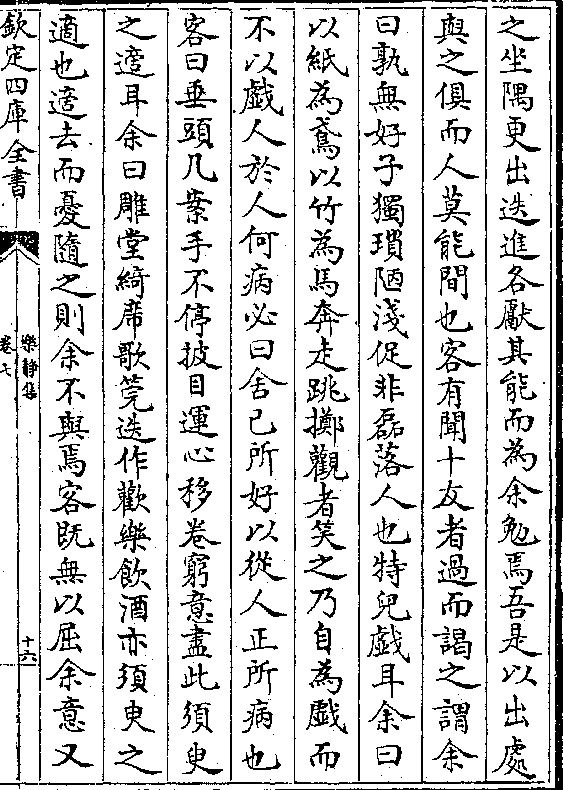 之坐隅更出迭進各獻其能而為余勉焉吾是以出處
與之俱而人莫能間也客有聞十友者過而謁之謂余
曰孰無好子獨瑣陋淺促非磊落人也特兒戲耳余曰
以紙為鳶以竹為馬奔走跳擲觀者笑之乃自為戲而
不以戲人於人何病必曰舍已所好以從人正所病也
客曰垂頭几案手不停披目運心移卷窮意盡此須臾
之適耳余曰雕堂綺席歌筦迭作歡樂飲酒亦須臾之
適也適去而憂隨之則余不與焉客既無以屈余意又
欽定四庫全書
樂靜集
卷七
十六